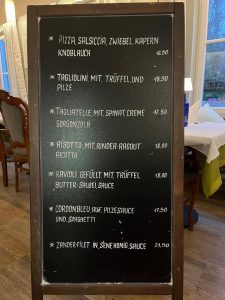 * PIZZA, SALSICCIA, ZWIEBEL, KAPERN
KNOBLAUCH 16.00
* TAGLIOLINI, MIT, TRÜFFEL UND
PILZE 18,50
* TAGLIATELLE, MIT, SPINAT, CREME
GORGONZOLA 17.50
* RISOTTO, MIT, RINDER-RAGOUT
RICOTTA 18.00
* RAVIOLI GEFÜLLT MIT, TRÜFFEL
BUTTER-SALBEI, SAUCE 18.00
* CORDONBLEU, AUF, PILZE SAUCE 17.50
UND, SPAGHETTI
* ZANDERFILET IN, SENF HONIG, SAUCE 21,50